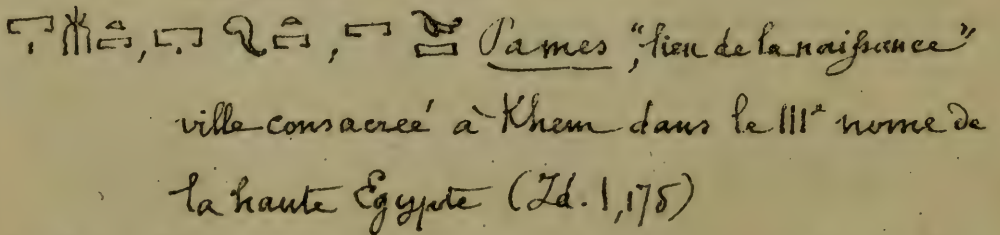 Pames "lieu de la naissance"
ville consacreé à Khem dans le III<sup>e</sup> nome de
la haute Egypte (Id. 1,175)